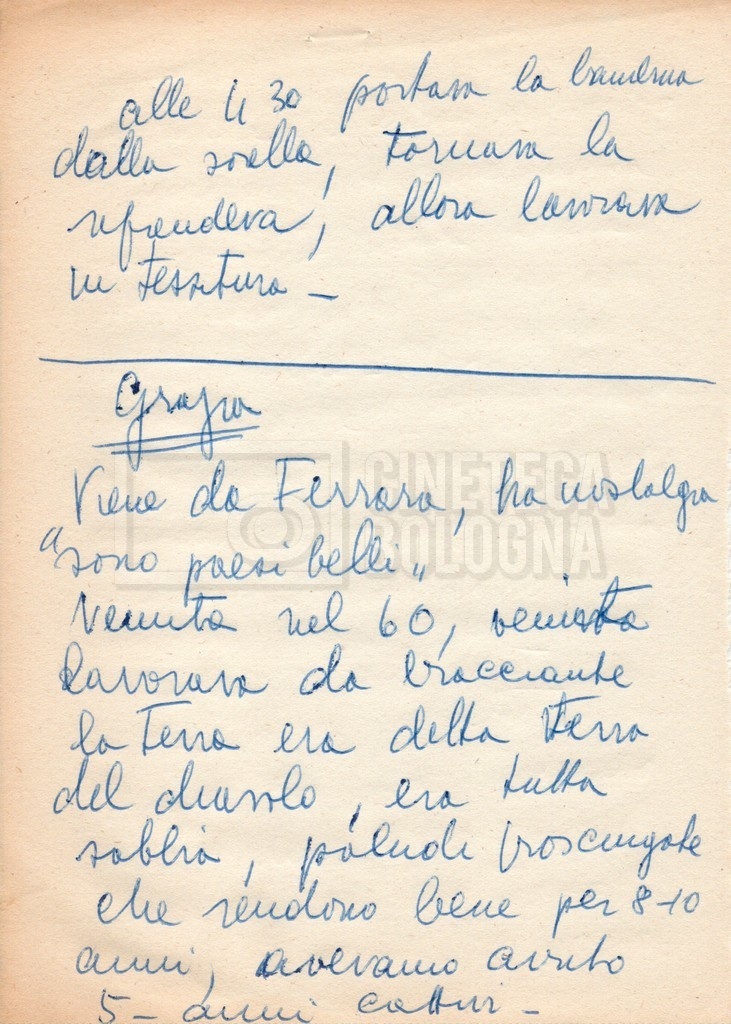 alle 4 30 portava la bambina
dalla sorella, tornava la
riprendeva, allora lavorava
in tessitura -
Grazia
Viene da Ferrara, ha nostalgia
"sono paesi belli"
Venuta nel 60, venista
lavorava da bracciante
la terra era detta terra
del diavolo, era tutta
sabbia, paludi prosciugate
che rendono bene per 8-10
anni, avevamo avuto
5- anni cattivi -
CINETECA
BOLOGNA